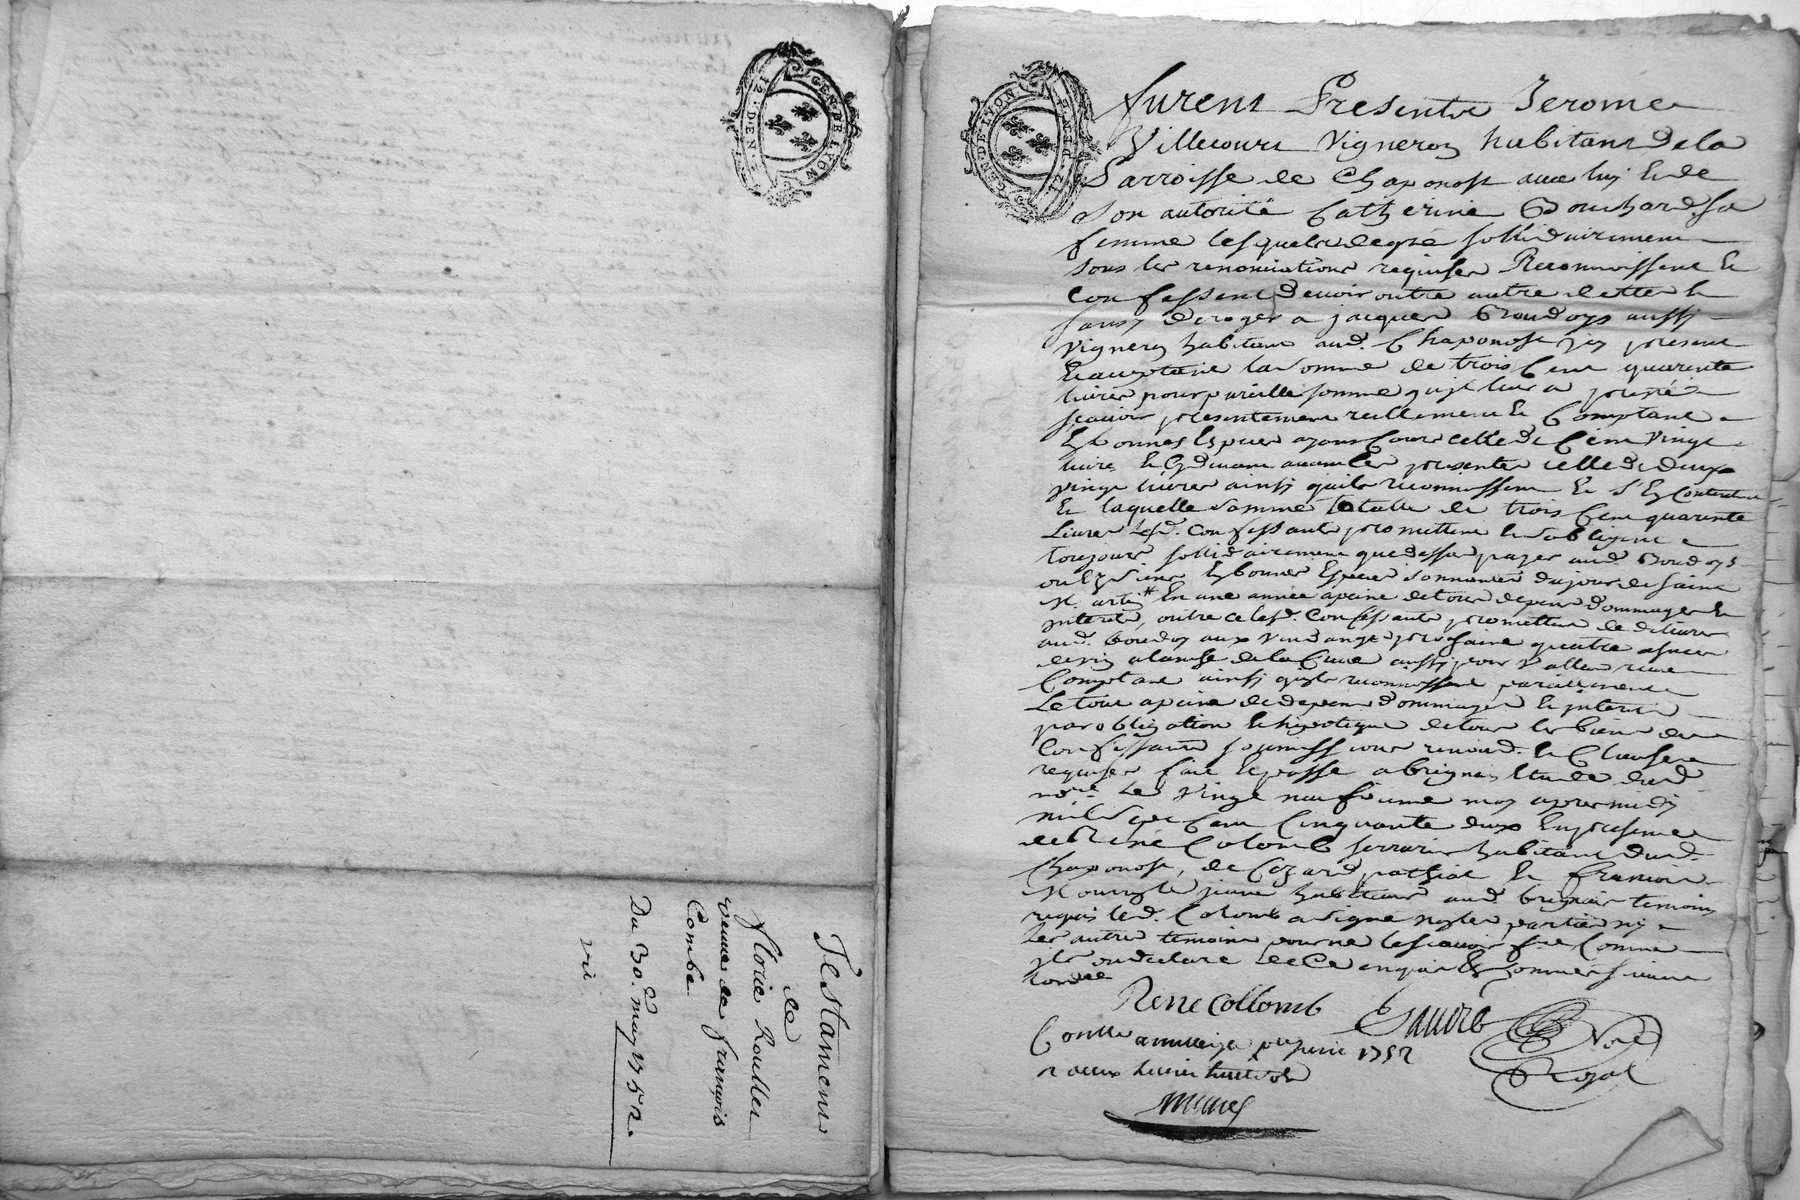 GEN. DE LYON
12. DEN.
Testament
de
florie Roullet
veuve de françois
Combe
Du 30e. may 1752.
GEN. DE LYON
12. DEN.
furent Presents Jerome
Villecourt Vigneron habitant de la
Parroisse de Chaponost avec luy et de
son autorité Catherine Bouchard sa
femme lesquels de gré sollidairement
sous les renonciations requises Reconnoissent et
Confessent devoir outre autre dette et
sans deroger a jacques Goudoys aussy
Vigneron habitant aud. Chaponost jcy present
et acceptant la somme de trois Cent quarente
livres pour pareille somme qu'jl leur a
scavoir presentement reellement et Comptant
En bonnes Especes ayant Cour celle de Cent Vingt
livres et Cy devant avant les presentes celle de deux
vingt livres ainsy quils reconnoissent Et s'En Contentent
Et laquelle somme totalle de trois Cent quarente
Livres lesd. Confessants promettent et s'obligent
toujours sollidairement que dessus payer aud. Goudoys
ou Es siens En bonnes Especes sonnantes du jour de saint
Martin En une année a peine de tous depens dommages Et
jnterets, outre ce lesd. Confessants promettent de delivrer
aud. Goudoy aux Vendanges prochaine quatre asnées
de vin a l'anse de la Cuve aussy pour Valleur
Comptant ainsy qu'jls reconnoissent pareillement
Le tout a peine de depens Dommages Et jnterets
par obligation Et hipoteque de tous les biens des
Confessants soumissions renond. Et Clauses
requises fait Et passé a brignais Etude dud.
nore. Le Vingt neufieme may apres midy
mil sept Cent Cinquante deux En presence
de René Colomb serrurier habitant dud.
Chaponost, de Cezard pathiat Et francois
jeune habitant aud. brignais temoins
requis led. Colomb a signé non les parties ny
Les autre temoins pour ne le scavoir fre. Comme
jls ont declaré de Ce enquis Et sommés suivant
lordce
Rene Collomb
Nore
Royal
Contlle a millery le pr. juin 1752